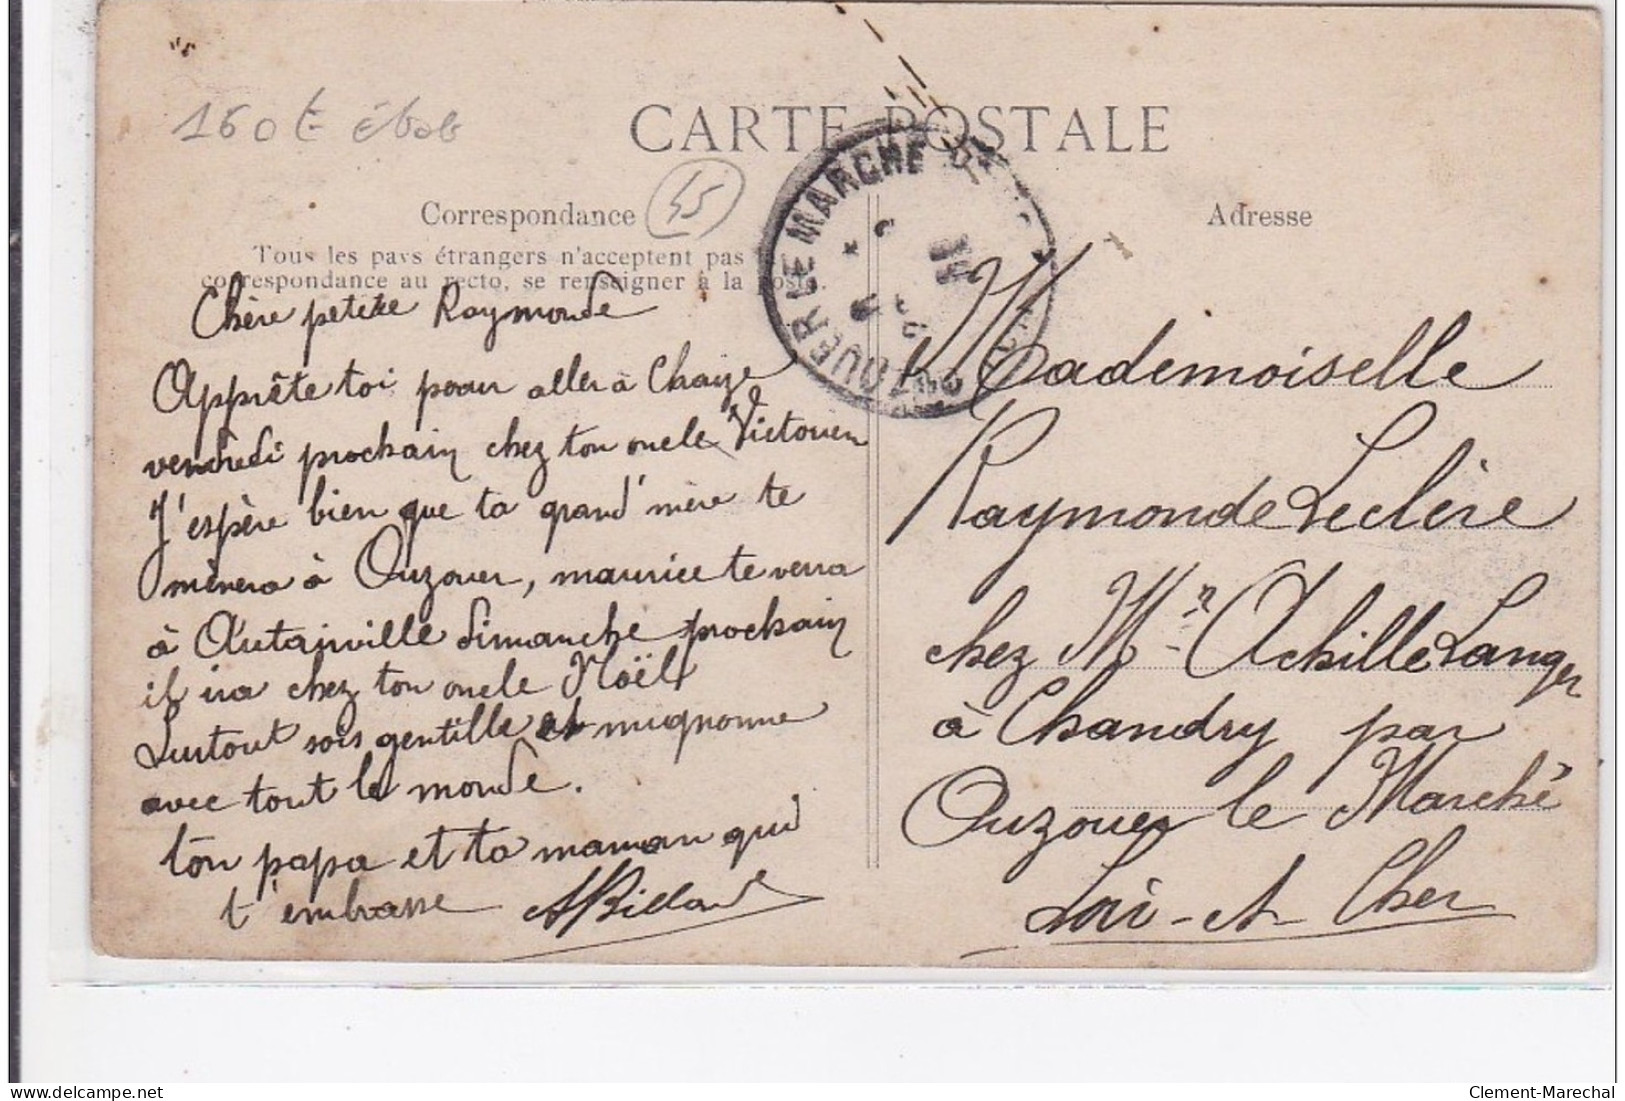 160 €
CARTE POSTALE
45
Correspondance
Tous les pays étrangers n'acceptent pas la
correspondance au recto, se renseigner à la poste.
Chère petite Raymonde
Apprête toi pour aller à Chaize
vendredi prochain chez ton oncle Victorien
J'espère bien que ta grand'mère te
mènera à Ouzouer, maurice te verra
à Autainville dimanche prochain
il ira chez ton oncle Noël
Surtout sois gentille et mignonne
avec tout le monde.
ton papa et ta maman qui
t'embrasse ABillard
OUZOUER LE MARCHE
Adresse
Mademoiselle
Raymonde Leclère
chez Mr Achille Langer
à Chandry par
Ouzouer le Marché
Loir-et Cher
Clement-Marechal